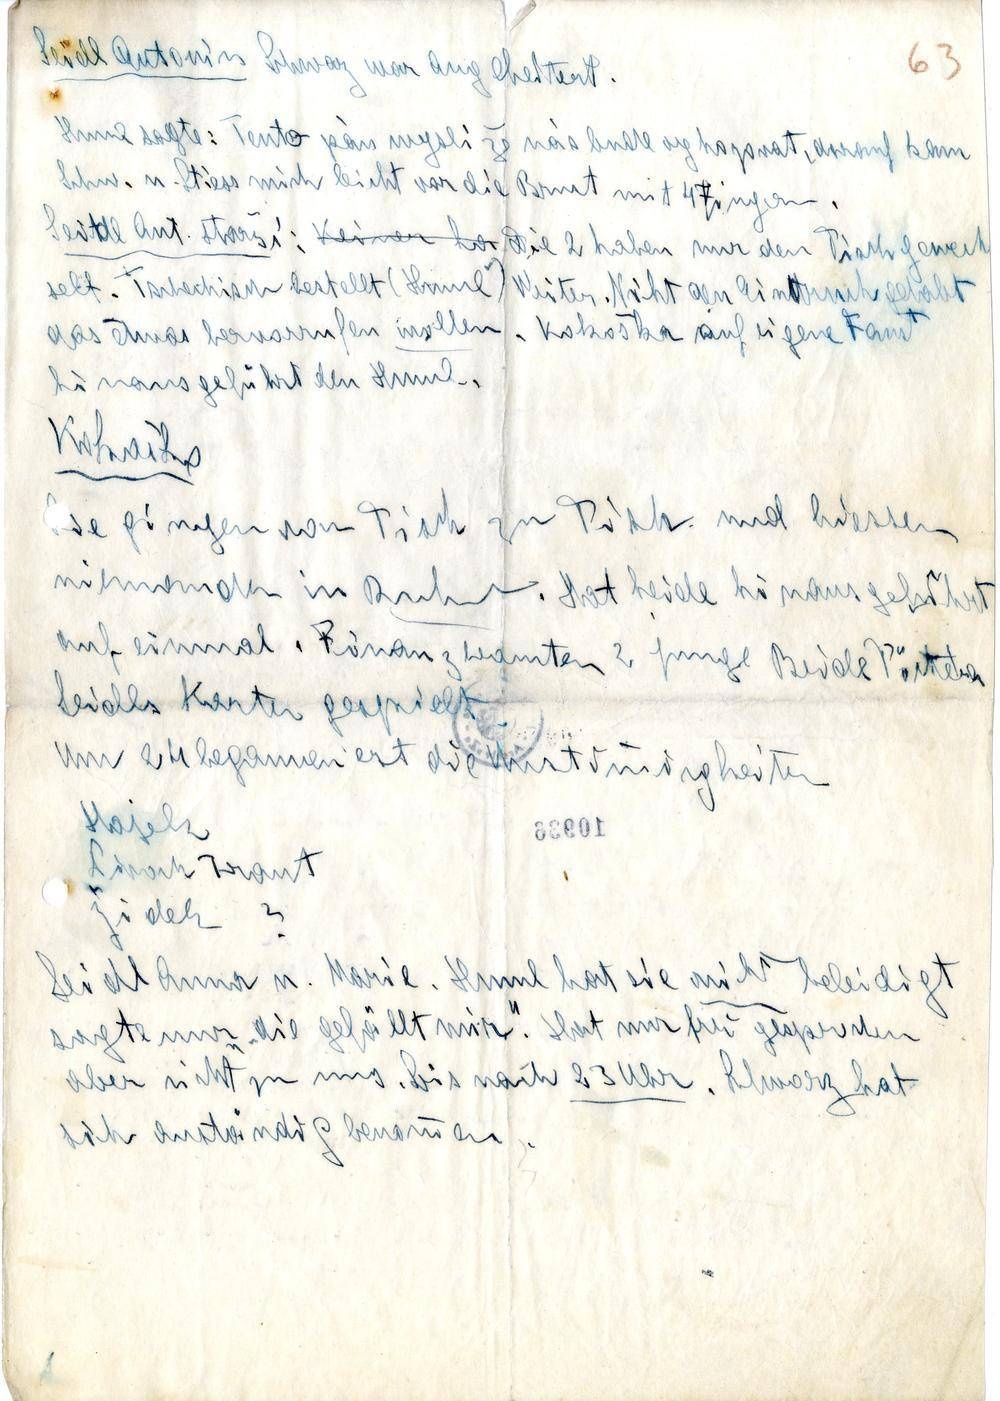 63
Seidl Antonin Schwarz war angeheitert.
Huml sagte: Tento pán myslí že nás bude vyhazovat, darauf kam
Schw. u. Stiess mich leicht vor die Brust mit 4 Fingern.
Seidl Ant. starší: Keiner hat Die 2 haben nur den Tisch gewech
selt. Tschechisch bestellt (Huml) Nicht den Eindruck gehabt
das Etwas hervorrufen wollen. Kokoška auf eigene Faust
hinausgeführt den Huml.
Kokoška
Sie gingen von Tisch zu Tisch und liessen
niemanden in Ruhe. Hat beide hinausgeführt
auf einmal. Finanzbeamten 2 junge Beide
Seidls Karten gespielt.
Um 24 begannen erst die Unstimmigkeiten
Hajek
Franz
Židek ?
Seidl Anna u. Marie. Huml hat sie nicht beleidigt
sagte nur „die gefällt mir“. Hat nur gesprochen
aber nicht zu uns. Bis nach 23 Uhr. Schwarz hat
sich anständig benommen.
10936